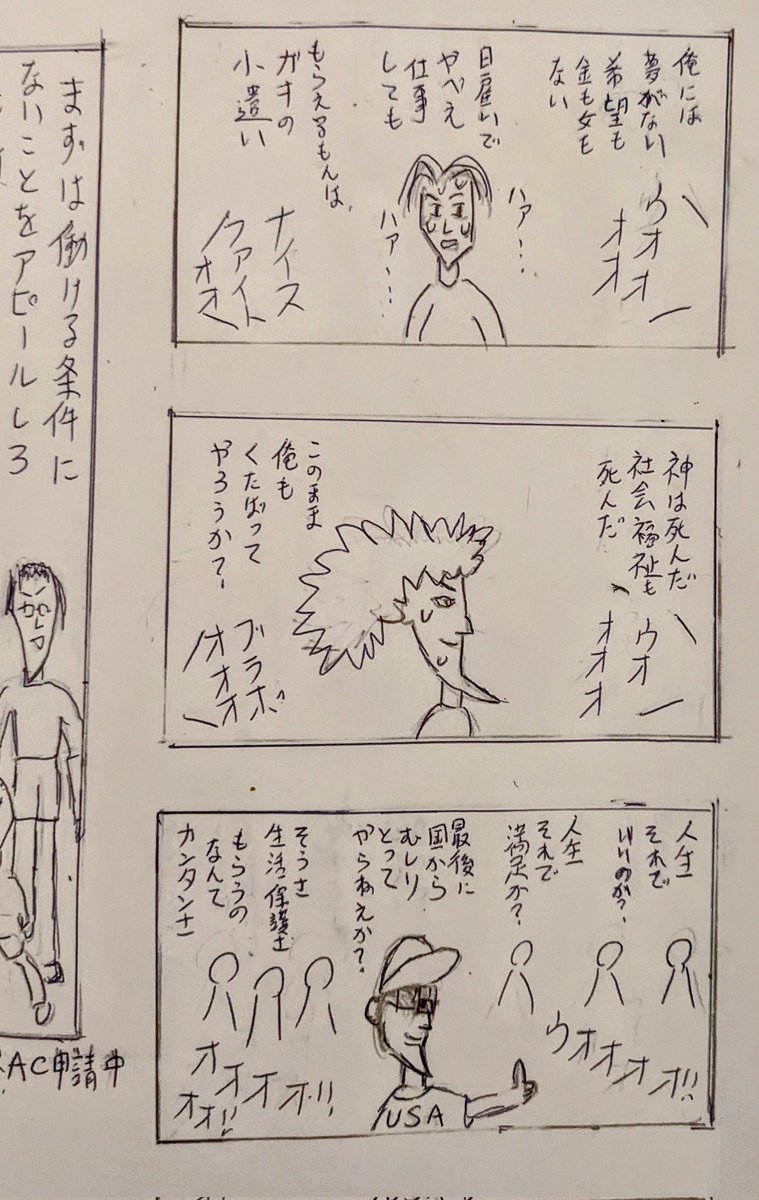 俺には
夢がない
希望も
金も女も
ない
ウオオ
オオ
日雇いで
やべえ
仕事
しても
ハァ…
ハァ…
もらえるもんは、
ガキの
小遣い
ナイス
ファイト
オオ
神は死んだ
社会福祉も
死んだ
ウオ
オオオ
このまま
俺も
くたばって
やろうか?
ブラボ
オオオオ
人生
それで
いいのか?
人生
それで
満足か?
ウオオオオ!!
最後に
国から
むしり
とって
やらねえか?
USA
そうさ
生活保護
もらうの
なんて
カンタンさ
オオオオ!!
オオ!!
まずは働ける条件に
ないことをアピールしろ
AC申請中